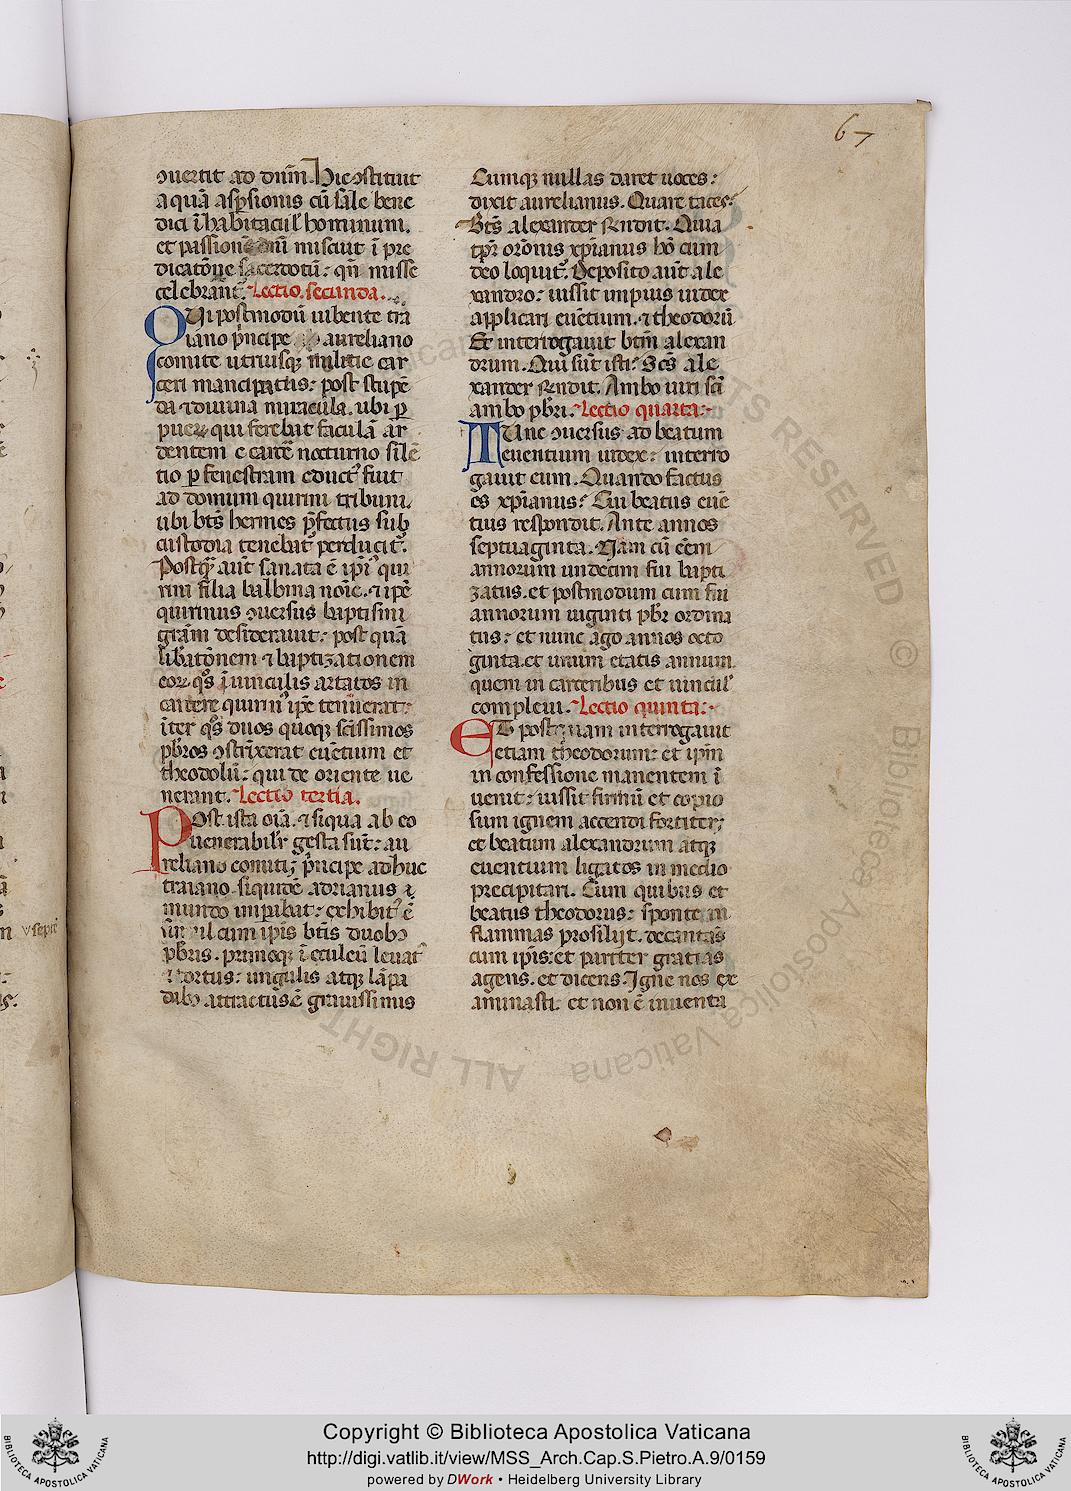 67
ↄuertit ad dnm̄. Hic ↄstituit
aquā aspsionis cū sale bene
dici ī habitacul' hominum.
et passionē dnī miscuit ī pre
dicatōne sacerdotū: qn̄ misse
celebrant̉. Lectio secunda.
Qui postmodū iubente tra
iano p̉ncipe aureliano
comite utriusqꝫ militie car
ceri mancipatus: post stupē
da ⁊ diuina miracula. ubi ꝑ
pueꝝ qui ferebat faculā ar
dentem e carcē nocturno silē
tio ꝑ fenestram educt᾽ fuit
ad domum quirini tribuni.
ubi bt̄s hermes p̄fectus sub
custodia tenebat̉ perducit̉.
Postqꝫ aut̄ sanata ē ipī᾽ qui
rini filia balbina noīe. ⁊ ipē
quirinus ↄuersus baptismi
grām desiderauit: post quā
lib̄atōnem ⁊ baptizationem
eoꝝ qͦs ī uinculis artatos in
carcere quirin᾽ ipē tenuerat:
iter qͦs duos quoqꝫ scīssimos
pb̄ros ↄstrīxerat euētium et
theodolū: qui de oriente ue
nerant. Lectio tertia.
Post ista oīa. ⁊ siqua ab eo
uenerabilr̄ gesta sūt: au
reliano comiti; p̉ncipe adhuc
traiano siquidē adrianus
mundo impabat: exhibit᾽ ē
cum ipīs btīs duobꝫ
pb̄ris. primoqꝫ ī eculeū leuat᾽
⁊ tortus: ungulis atqꝫ lāpa
dibꝫ attractus ē grauissimis
Cumqꝫ nullas daret uoces:
dixit aurelianus. Quare taces?
Bt̄s alexander rn̄dit. Quia
tpr̄ orōnis xpīanus hō cum
deo loquit̉. Deposito aut̄ ale
xandro: iussit impius iudex
applicari euētium. ⁊ theodorū
Et interrogauit btm̄ alexan
drum. Qui sūt isti? Scs̄ ale
xander rn̄dit. Ambo uiri scī
ambo pb̄ri. Lectio quarta:
Tunc ↄuersus ad beatum
euentium iudex: interro
gauit eum. Quando factus
es xpīanus? Cui beatus euē
tius respondit. Ante annos
septuaginta. Nam cū eēm
annorum undecim fui bapti
zatus. et postmodum cum fui
annorum uiginti pb̄r ordina
tus: et nunc ago annos octo
ginta. et unum etatis annum.
quem in carceribus et uincul'
compleui. Lectio quinta:
Et postquam interrogauit
etiam theodorum: et ipm̄
in confessione manentem ī
uenit: iussit firmū et copio
sum ignem accendi fortiter;
et beatum alexandrum atqꝫ
euentium ligatos in medio
precipitari. Cum quibus et
beatus theodorus: sponte in
flammas prosilijt. decantās
cum ipīs: et pariter gratias
agens. et dicens. Igne nos ex
aminasti: et non ē inuenta
Copyright © Biblioteca Apostolica Vaticana
http://digi.vatlib.it/view/MSS_Arch.Cap.S.Pietro.A.9/0159
powered by DWork • Heidelberg University Library